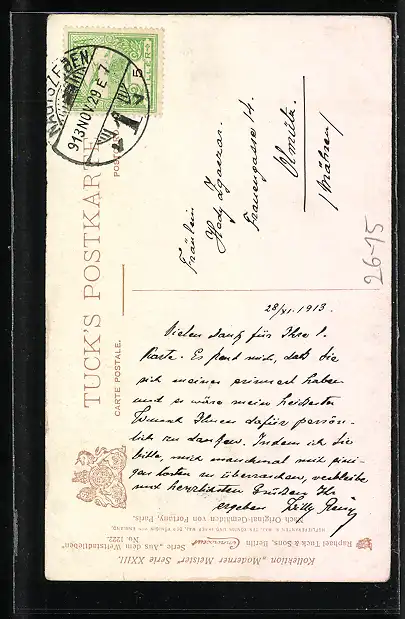 NAGYSZEBEN
913 NOV. 29 E 7
1
5
FILLÉR
TUCK'S POSTKARTE
CARTE POSTALE.
POSTCARD
Fräulein
Hedy
Frauengasse 14.
Olmütz.
/Mähren/
26-15
28/XI. 1913.
Vielen Dank für Ihre l.
Karte. Es freut mich, daß Sie
sich meiner erinnert haben
und es wäre mein heißester
Wunsch Ihnen dafür persön-
lich zu danken. Indem ich Sie
bitte, mich manchmal mit eini-
gen Karten zu überraschen, verbleibe
mit herzlichsten Grüßen Ihr
ergeben Fritz
Nach Original-Gemälden von Fortuny, Paris.
Raphael Tuck & Sons, Berlin Connoisseur
Serie „Aus dem Weltstadtleben"
No. 1222.
Kollektion „Moderner Meister" Serie XXIII.